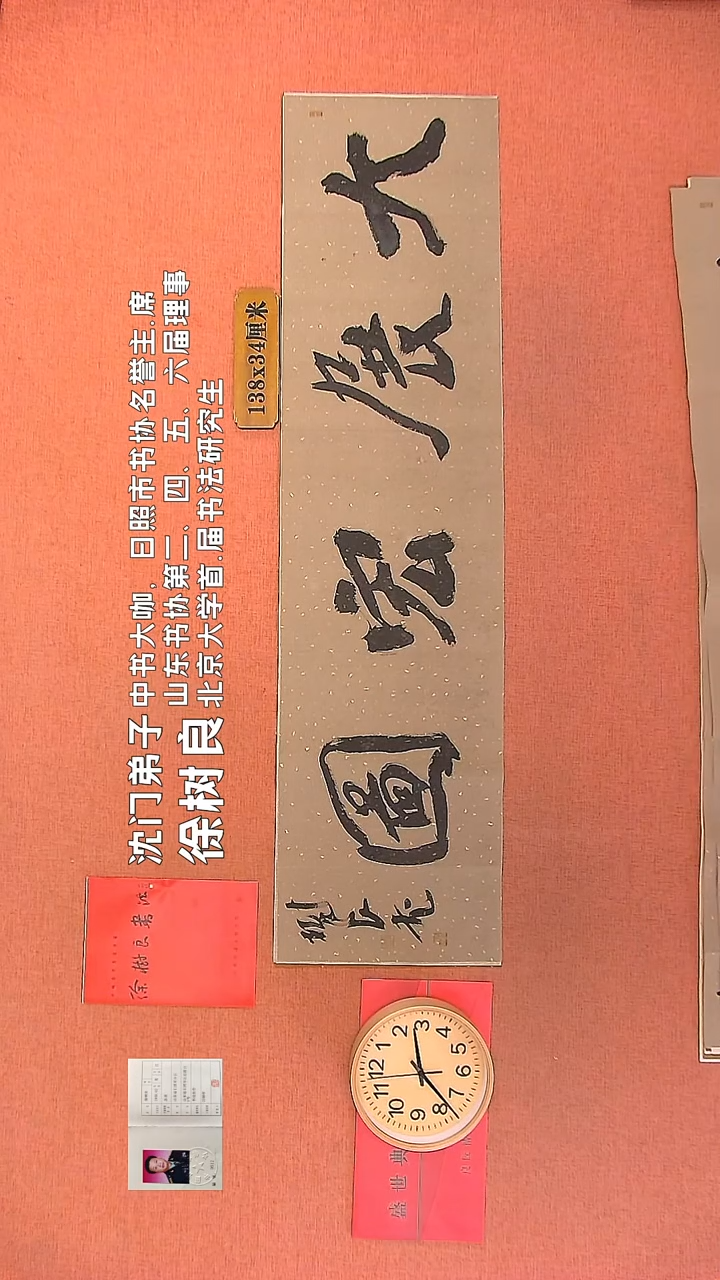 沈门弟子 中书大咖,日照市书协名誉主席
山东书协第三、四、五、六届理事
徐树良 北京大学首届书法研究生
138x34厘米
大展宏圖
徐樹良書法
盛世典
12
1
2
3
4
5
6
7
8
9
10
11